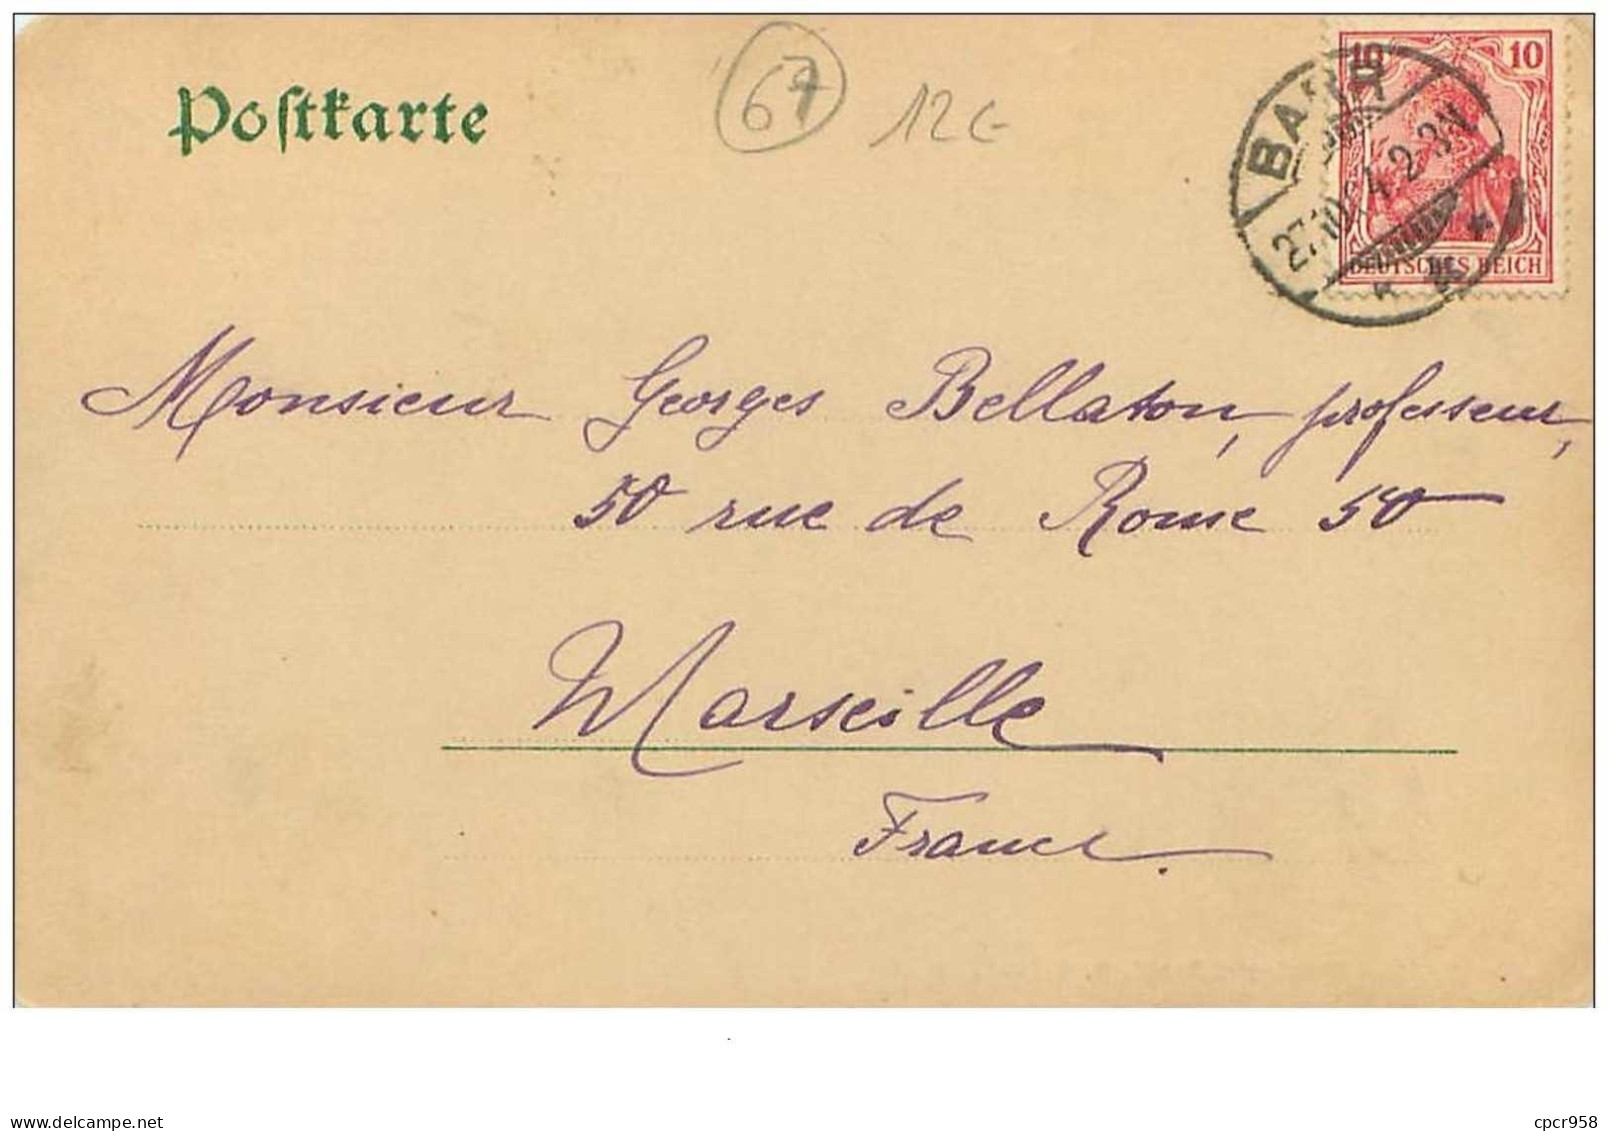 Postkarte
67
12€
BARR
27.10.04.2-3N
10 10
DEUTSCHES REICH
Monsieur Georges Bellaton, professeur,
50 rue de Rome 50
Marseille
France.
delcampe.net
cpcr958